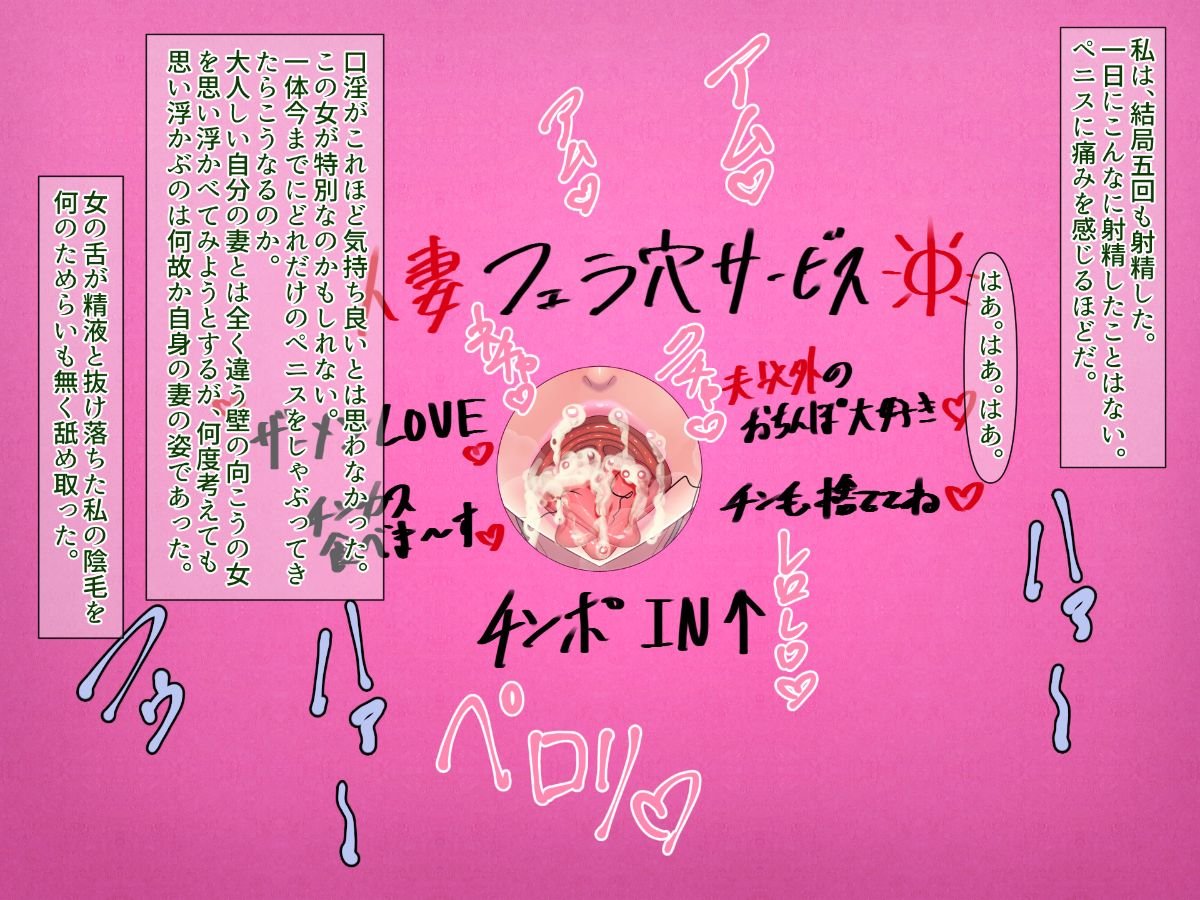 私は、結局五回も射精した。
一日にこんなに射精したことはない。
ペニスに痛みを感じるほどだ。
はあ。はあ。はあ。
アム♡
アム♡
人妻 フェラ穴サービス
夫以外の
おちんぽ大好き♡
チンも捨ててね♡
クチャ♡
ネチャ♡
ザーメンLOVE♡
チンカス
食べま～す♡
チンポIN↑
レロレロ♡
ペロリ♡
ハァ～
口淫がこれほど気持ち良いとは思わなかった。
この女が特別なのかもしれない。
一体今までにどれだけのペニスをしゃぶってき
たらこうなるのか。
大人しい自分の妻とは全く違う壁の向こうの女
を思い浮かべてみようとするが、何度考えても
思い浮かぶのは何故か自身の妻の姿であった。
ハァ～
女の舌が精液と抜け落ちた私の陰毛を
何のためらいも無く舐め取った。
クゥ